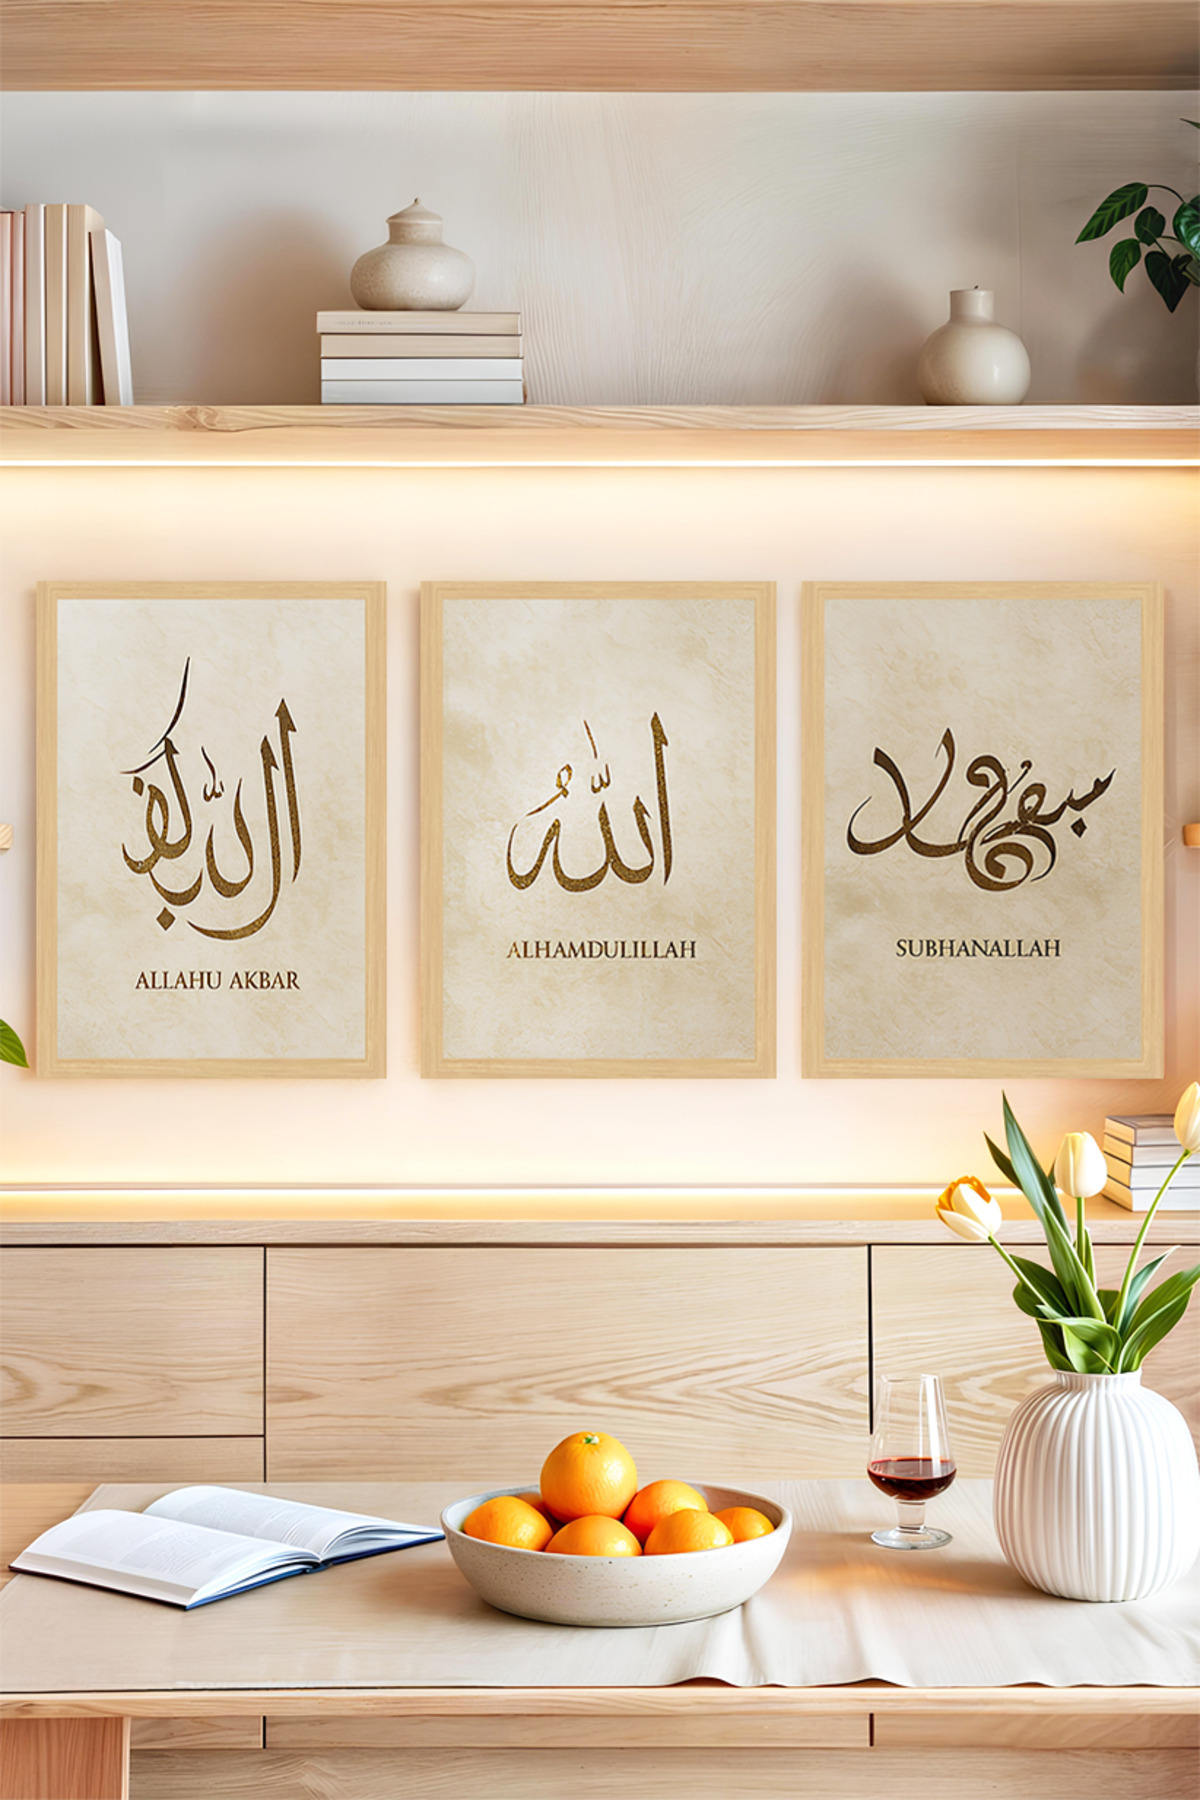 ALLAHU AKBAR
الله
ALHAMDULILLAH
SUBHANALLAH